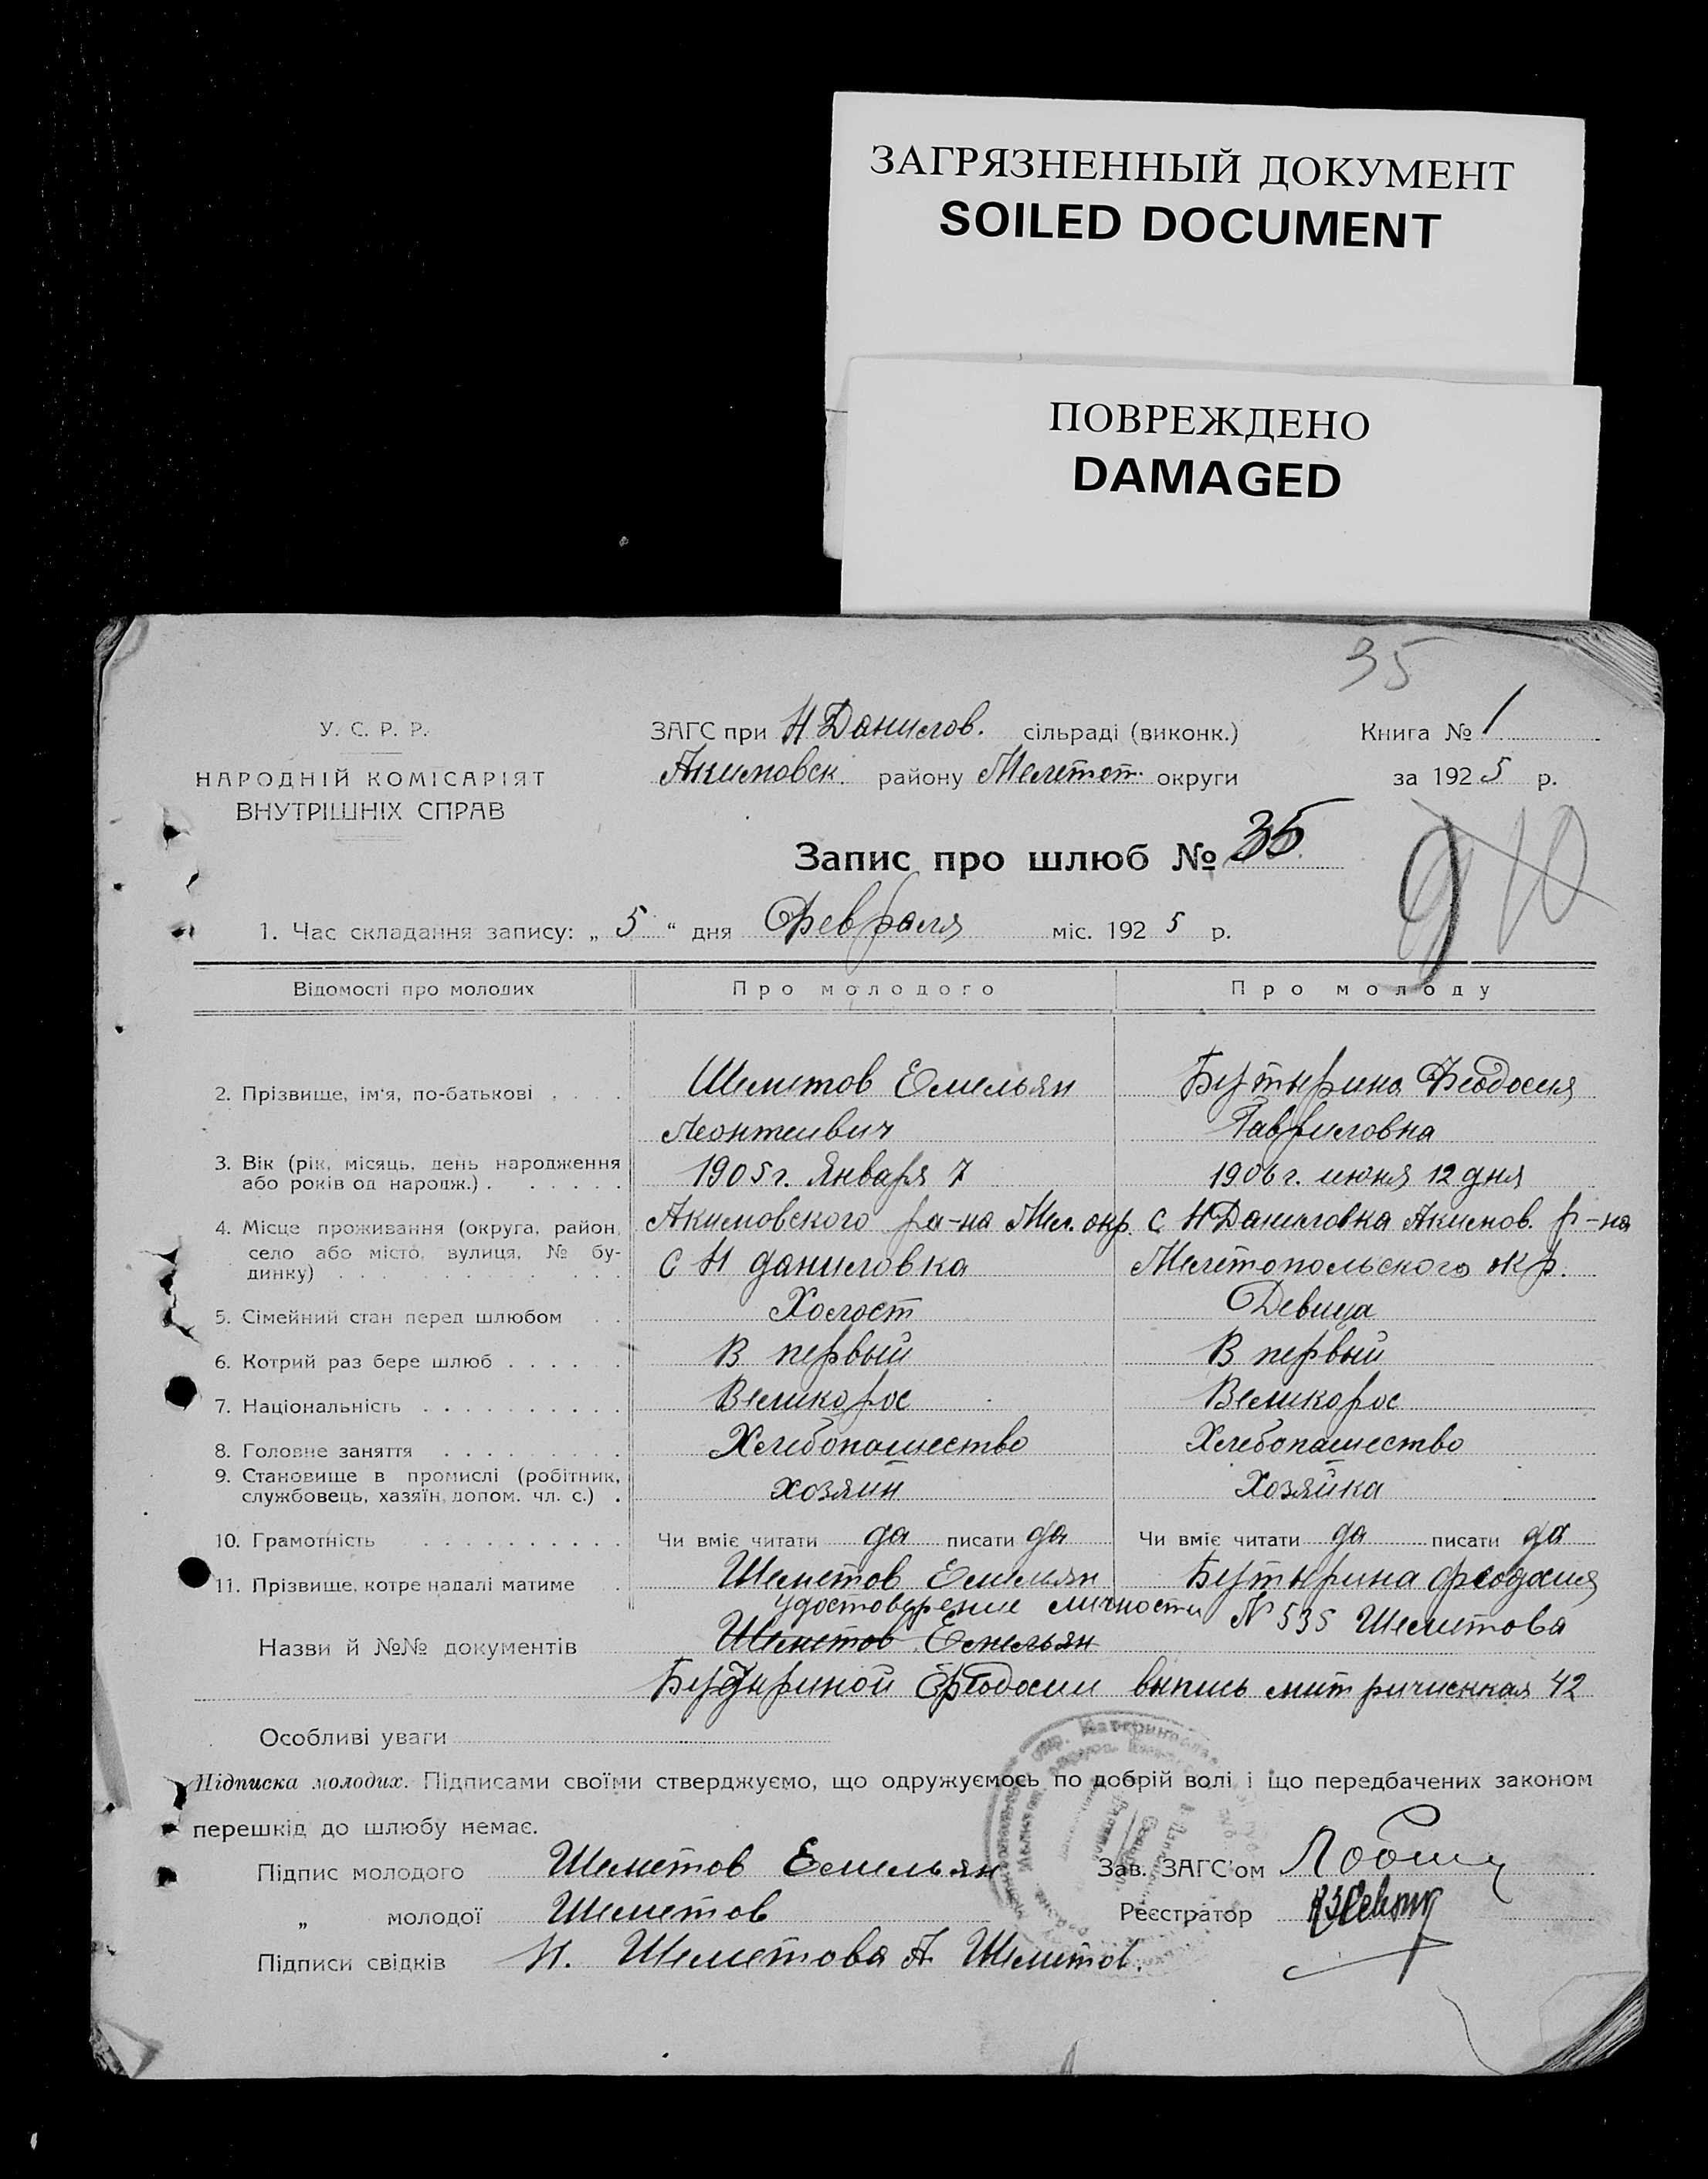 ЗАГРЯЗНЕННЫЙ ДОКУМЕНТ
SOILED DOCUMENT
ПОВРЕЖДЕНО
DAMAGED
35
У. С. Р. Р.
НАРОДНІЙ КОМІСАРІЯТ
ВНУТРІШНІХ СПРАВ
ЗАГС при Н Данилов. сільраді (виконк.)
Акимовск. району Мелетоп. округи
Книга № 1
за 1925 р.
Запис про шлюб № 35
9 10
1. Час складання запису: „ 5 “ дня Февраля міс. 1925 р.
Відомості про молодих Про молодого Про молоду
2. Прізвище, ім'я, по-батькові . . . . Шеметов Емельян Бутырина Феодосия
Леонтиевич Гавриловна
3. Вік (рік, місяць, день народження або років од народж.) . . . . . . 1905 г. Января 7 1906 г. июня 12 дня
4. Місце проживання (округа, район, село або місто, вулиця, № будинку) . . . Акимовского ра-на Мел. окр. С Н Даниловка Акимов. р-на
с Н даниловка Мелетопольского окр.
5. Сімейний стан перед шлюбом . . Холост Девица
6. Котрий раз бере шлюб . . . . . В первый В первый
7. Національність . . . . . . . . . . Великорос Великорос
8. Головне заняття . . . . . . . . . Хлебопашество Хлебопашество
9. Становище в промислі (робітник, службовець, хазяїн, допом. чл. с.) . хозяин Хозяйка
10. Грамотність . . . . . . . . . . . Чи вміє читати да писати да Чи вміє читати да писати да
11. Прізвище, котре надалі матиме . Шеметов Емельян Бутырина феодосия
удостоверение личности N 535 Шеметова
Назви й №№ документів Шеметов Емельян
Бутыриной Феодосии выпись метрическая 42
Особливі уваги
Підписка молодих. Підписами своїми стверджуємо, що одружуємось по добрій волі і що передбачених законом
перешкід до шлюбу немає.
Підпис молодого Шеметов Емельян Зав. ЗАГС'ом
„ молодої Шеметов Реєстратор
Підписи свідків Н. Шеметова А. Шеметов.